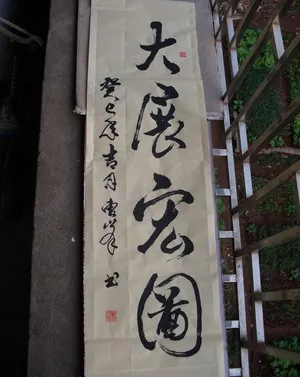 大展宏圖
癸巳年吉月雲峰書